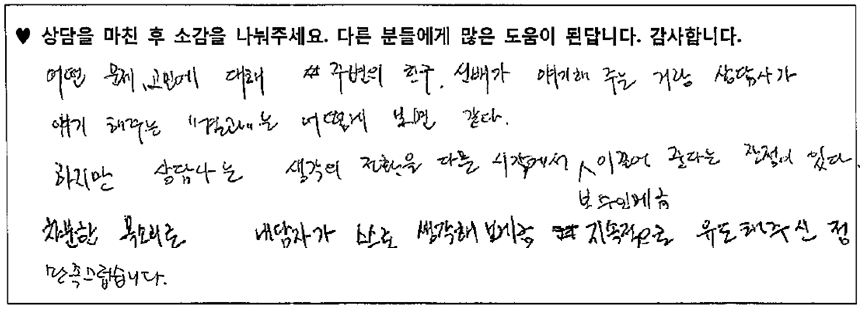 ♥ 상담을 마친 후 소감을 나눠주세요. 다른 분들에게 많은 도움이 된답니다. 감사합니다.
어떤 문제, 고민에 대해 주변의 친구, 선배가 얘기해 주는 거랑 상담사가
얘기 해주는 "결과"는 어떻게 보면 같다.
하지만 상담사는 생각의 전환을 다른 시각에서 이끌어 준다는 장점이 있다.
볼 수 있게끔
차분한 목소리로 내담자가 스스로 생각해 보게끔 지속적으로 유도해주신 점
만족스럽습니다.